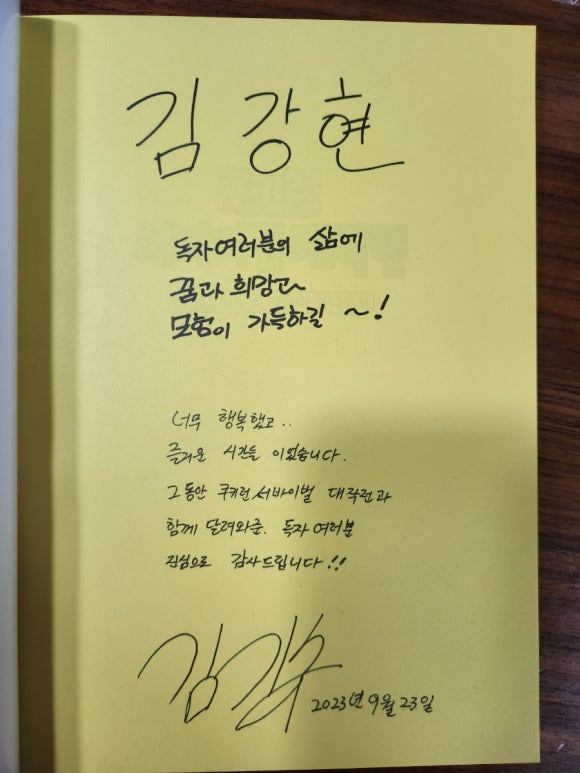 김강현
독자여러분의 삶에
꿈과 희망과
모험이 가득하길 ~!
너무 행복했고..
즐거운 시간들 이었습니다.
그동안 쿠키런 서바이벌 대작전과
함께 달려와준. 독자 여러분
진심으로 감사드립니다!!
2023년 9월 23일